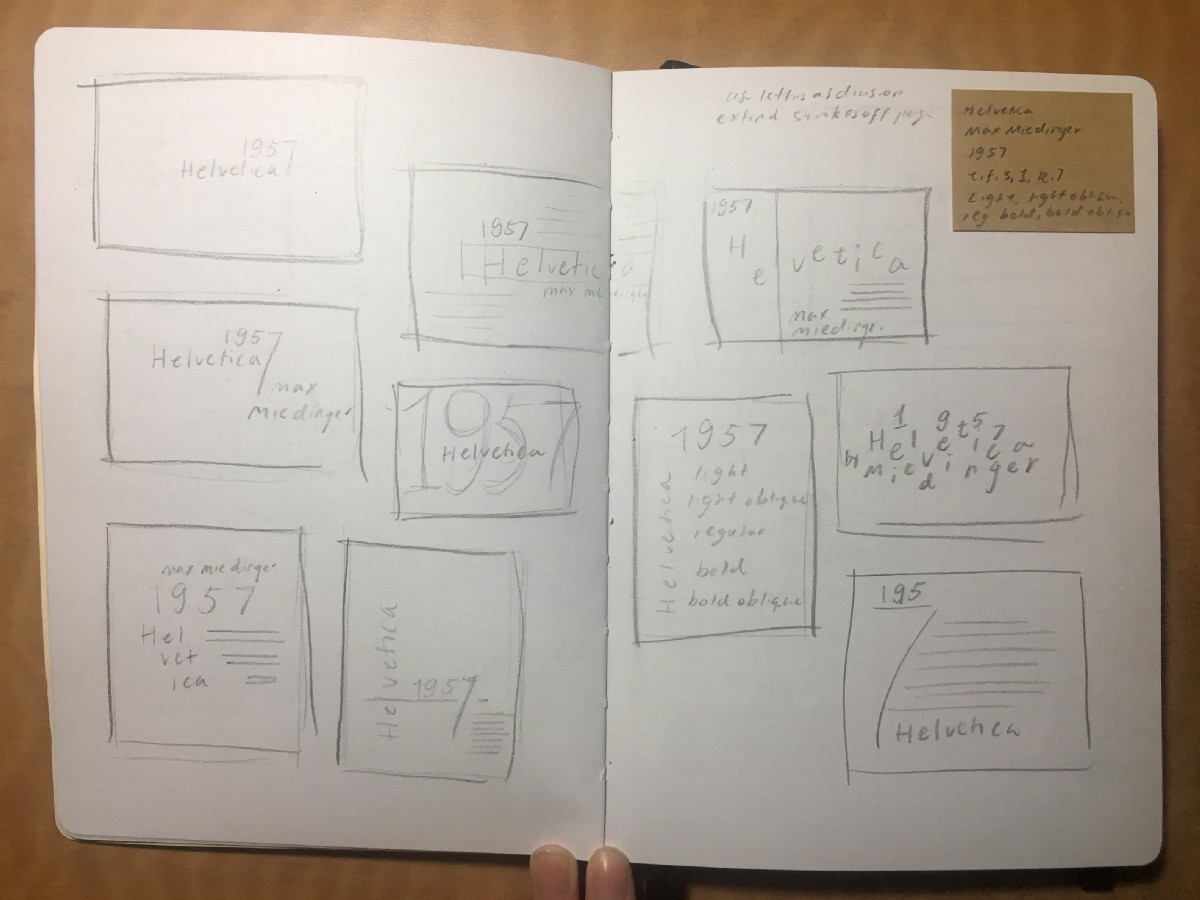 1957
Helvetica
1957
Helvetica
max miedinger
1957
Helvetica
max
Miedinger
1957
Helvetica
max miedinger
1957
Hel
vet
ica
Helvetica
1957
extend strokes off page
Helvetica
Max Miedinger
1957
t, f, s, 1, R, 7
Light, light oblique,
reg. bold, bold oblique
1957
H
e
vetica
max
miedinger.
1957
Helvetica
light
light oblique
regular
bold
bold oblique
1957
Helvetica
by miedinger
195
Helvetica